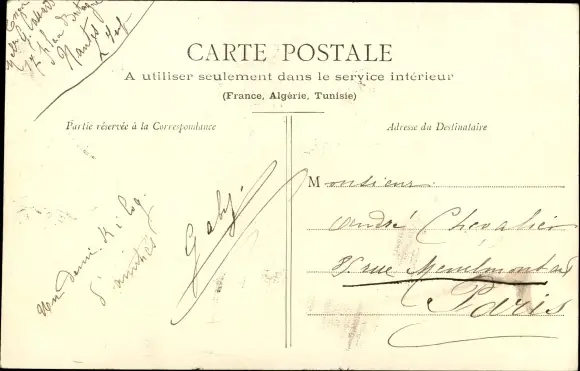 17 place
Nantes
CARTE POSTALE
A utiliser seulement dans le service intérieur
(France, Algérie, Tunisie)
Partie réservée à la Correspondance
Adresse du Destinataire
Un demi Kilog.
d'amitiés
Gaby.
Monsieur
André Chevalier
rue Menilmontant
Paris